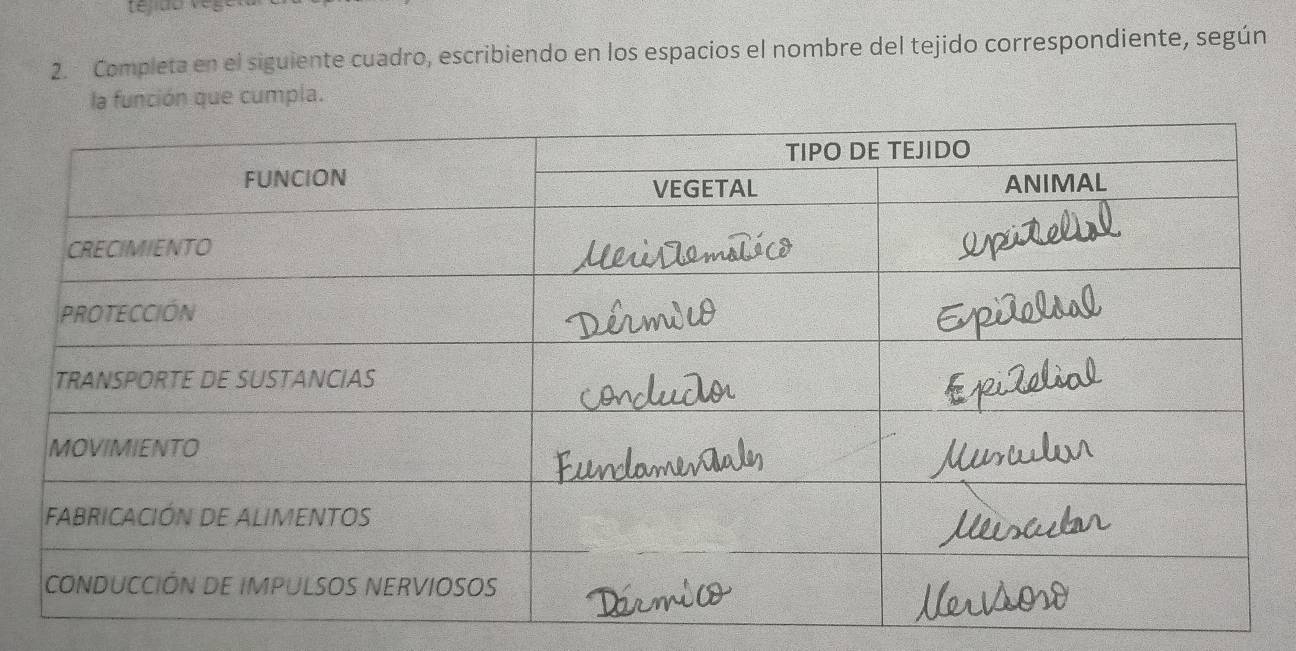 2. Completa en el siguiente cuadro, escribiendo en los espacios el nombre del tejido correspondiente, según
la función que cumpla.
FUNCION
TIPO DE TEJIDO
VEGETAL
ANIMAL
CRECIMIENTO
Meristematico
epitelial
PROTECCIÓN
Dérmico
Epitelial
TRANSPORTE DE SUSTANCIAS
conductor
Epitelial
MOVIMIENTO
Fundamentales
Muscular
FABRICACIÓN DE ALIMENTOS
Muscular
CONDUCCIÓN DE IMPULSOS NERVIOSOS
Dérmico
Nervioso